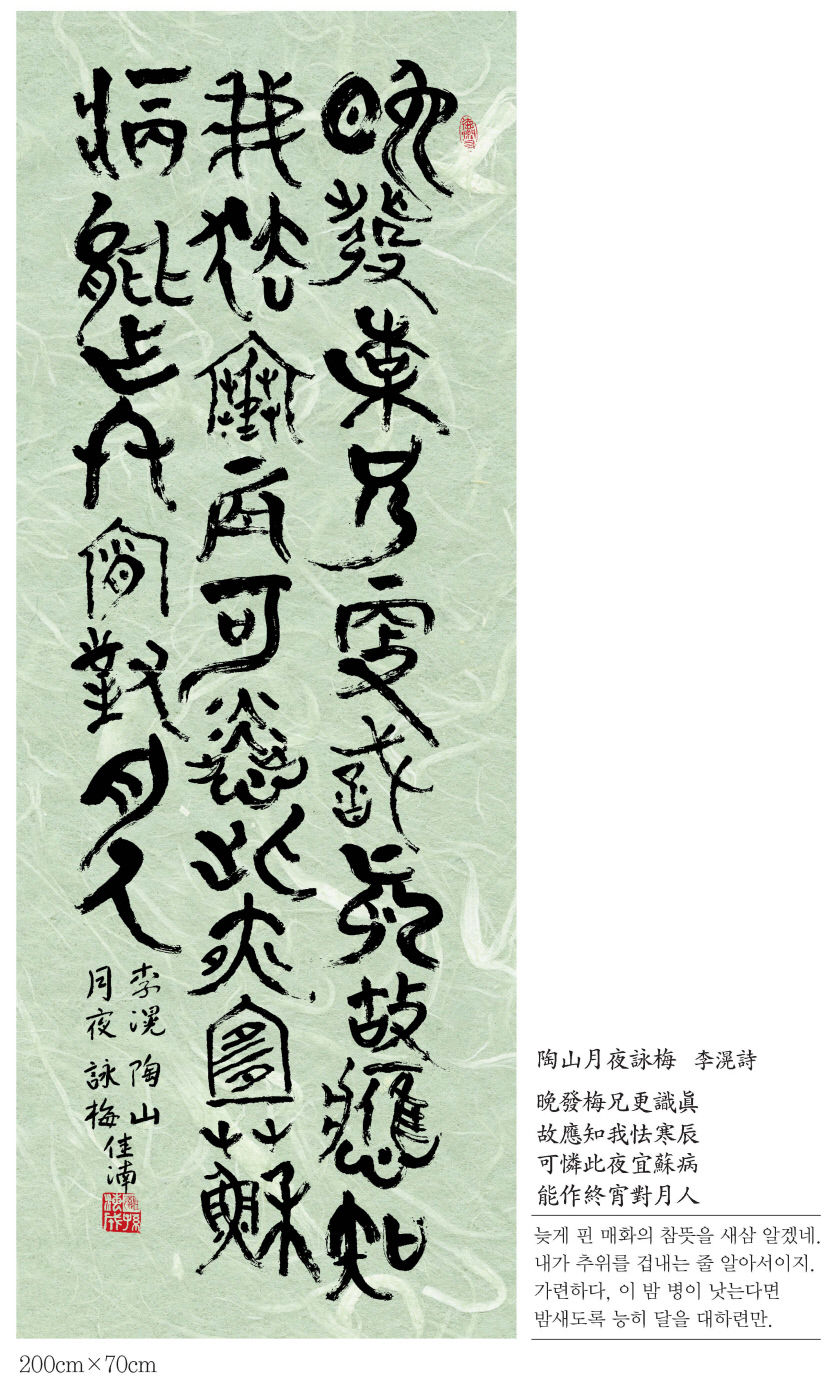 晚發梅兄更識眞故應知
我怯寒辰可憐此夜宜蘇
病能作終宵對月人
李滉 陶山
月夜 詠梅 佳湳
陶山月夜詠梅 李滉詩
晚發梅兄更識眞
故應知我怯寒辰
可憐此夜宜蘇病
能作終宵對月人
늦게 핀 매화의 참뜻을 새삼 알겠네.
내가 추위를 겁내는 줄 알아서이지.
가련하다, 이 밤 병이 낫는다면
밤새도록 능히 달을 대하련만.
200cm×70cm